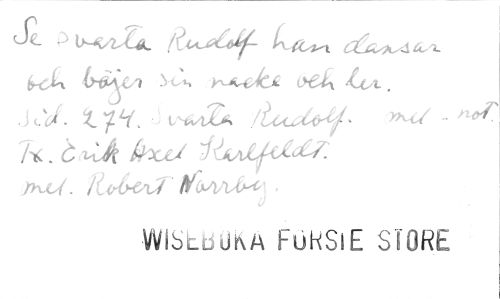 Se svarta Rudolf han dansar
och böjer sin nacke och ler.
sid. 274. Svarta Rudolf. mel - not.
Tx. Erik Axel Karlfeldt.
mel. Robert Norrby.
WISEBOKA FORSTE STORE